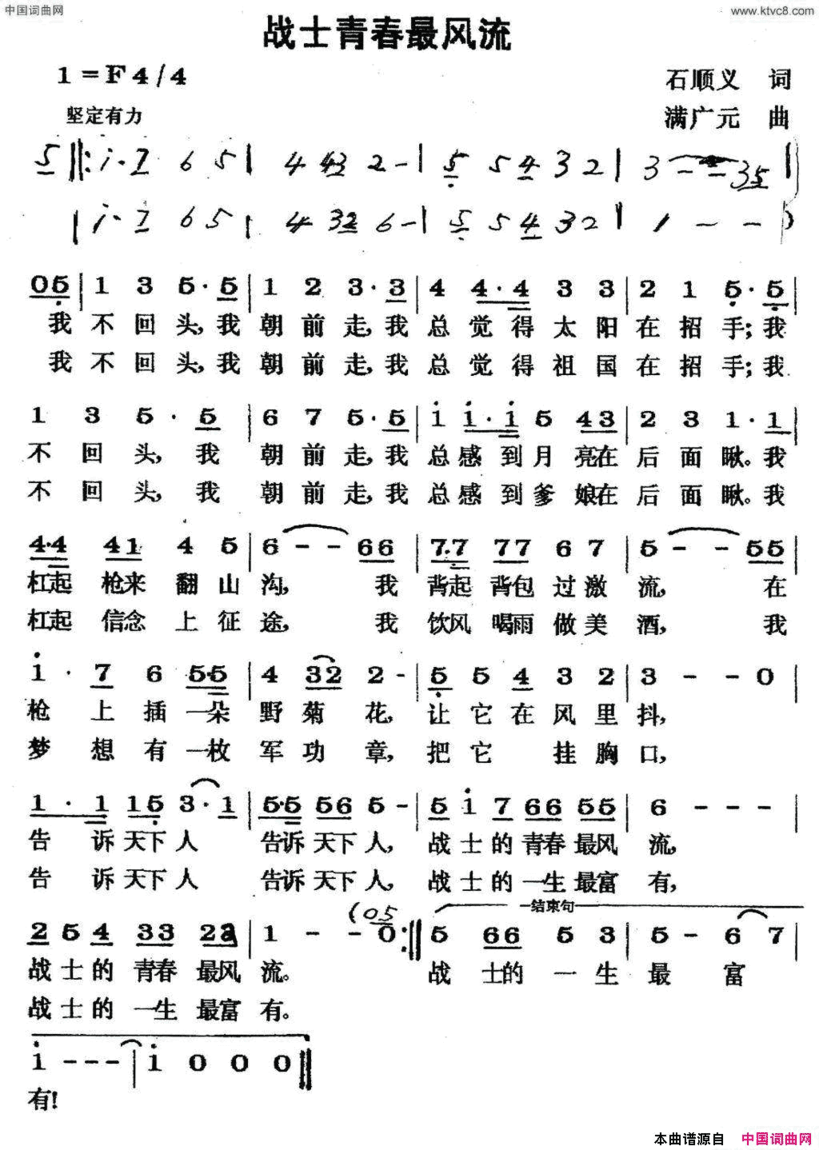 中国词曲网
www.ktvc8.com
战士青春最风流
1=F 4/4
石顺义 词
坚定有力
满广元 曲
5 ‖: i · 7 6 5 | 4 43 2 - | 5 5 4 3 2 | 3 - - 35 |
| i · 7 6 5 | 4 32 6 - | 5 5 4 3 2 | 1 - - )
05 | 1 3 5 · 5 | 1 2 3 · 3 | 4 4 · 4 3 3 | 2 1 5 · 5 |
我 不 回 头, 我 朝 前 走, 我 总 觉 得 太 阳 在 招 手; 我
我 不 回 头, 我 朝 前 走, 我 总 觉 得 祖 国 在 招 手; 我
1 3 5 · 5 | 6 7 5 · 5 | i i · i 5 43 | 2 3 1 · 1 |
不 回 头, 我 朝 前 走, 我 总 感 到 月 亮在 后 面 瞅。我
不 回 头, 我 朝 前 走, 我 总 感 到 爹 娘在 后 面 瞅。我
4·4 41 4 5 | 6 - - 66 | 7·7 77 6 7 | 5 - - 55 |
杠起 枪来 翻 山 沟, 我 背起 背包 过 激 流, 在
杠起 信念 上 征 途, 我 饮风 喝雨 做 美 酒, 我
i · 7 6 5·5 | 4 32 2 - | 5 5 4 3 2 | 3 - - 0 |
枪 上 插 一朵 野 菊 花, 让 它 在 风 里 抖,
梦 想 有 一枚 军 功 章, 把 它 挂 胸 口,
1 · 1 15 3 · 1 | 5·5 56 5 - | 5 i 7 66 55 | 6 - - - |
告 诉 天下 人 告诉 天下 人, 战 士 的 青春 最风 流,
告 诉 天下 人 告诉 天下 人, 战 士 的 一生 最富 有,
(05
结束句
2 5 4 33 23 | 1 - - 0 :‖ 5 66 5 3 | 5 - 6 7 |
战 士 的 青春 最风 流。 战 士的 一 生 最 富
战 士 的 一生 最富 有。
i - - - | i 0 0 0 ‖
有!
本曲谱源自 中国词曲网